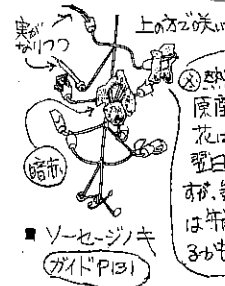 実が
なりつつ
上の方で咲い
㊟熱
原産
花は
翌日
すが、
は午前
るかも
暗赤
■ ソーセージノキ
ガイドP131